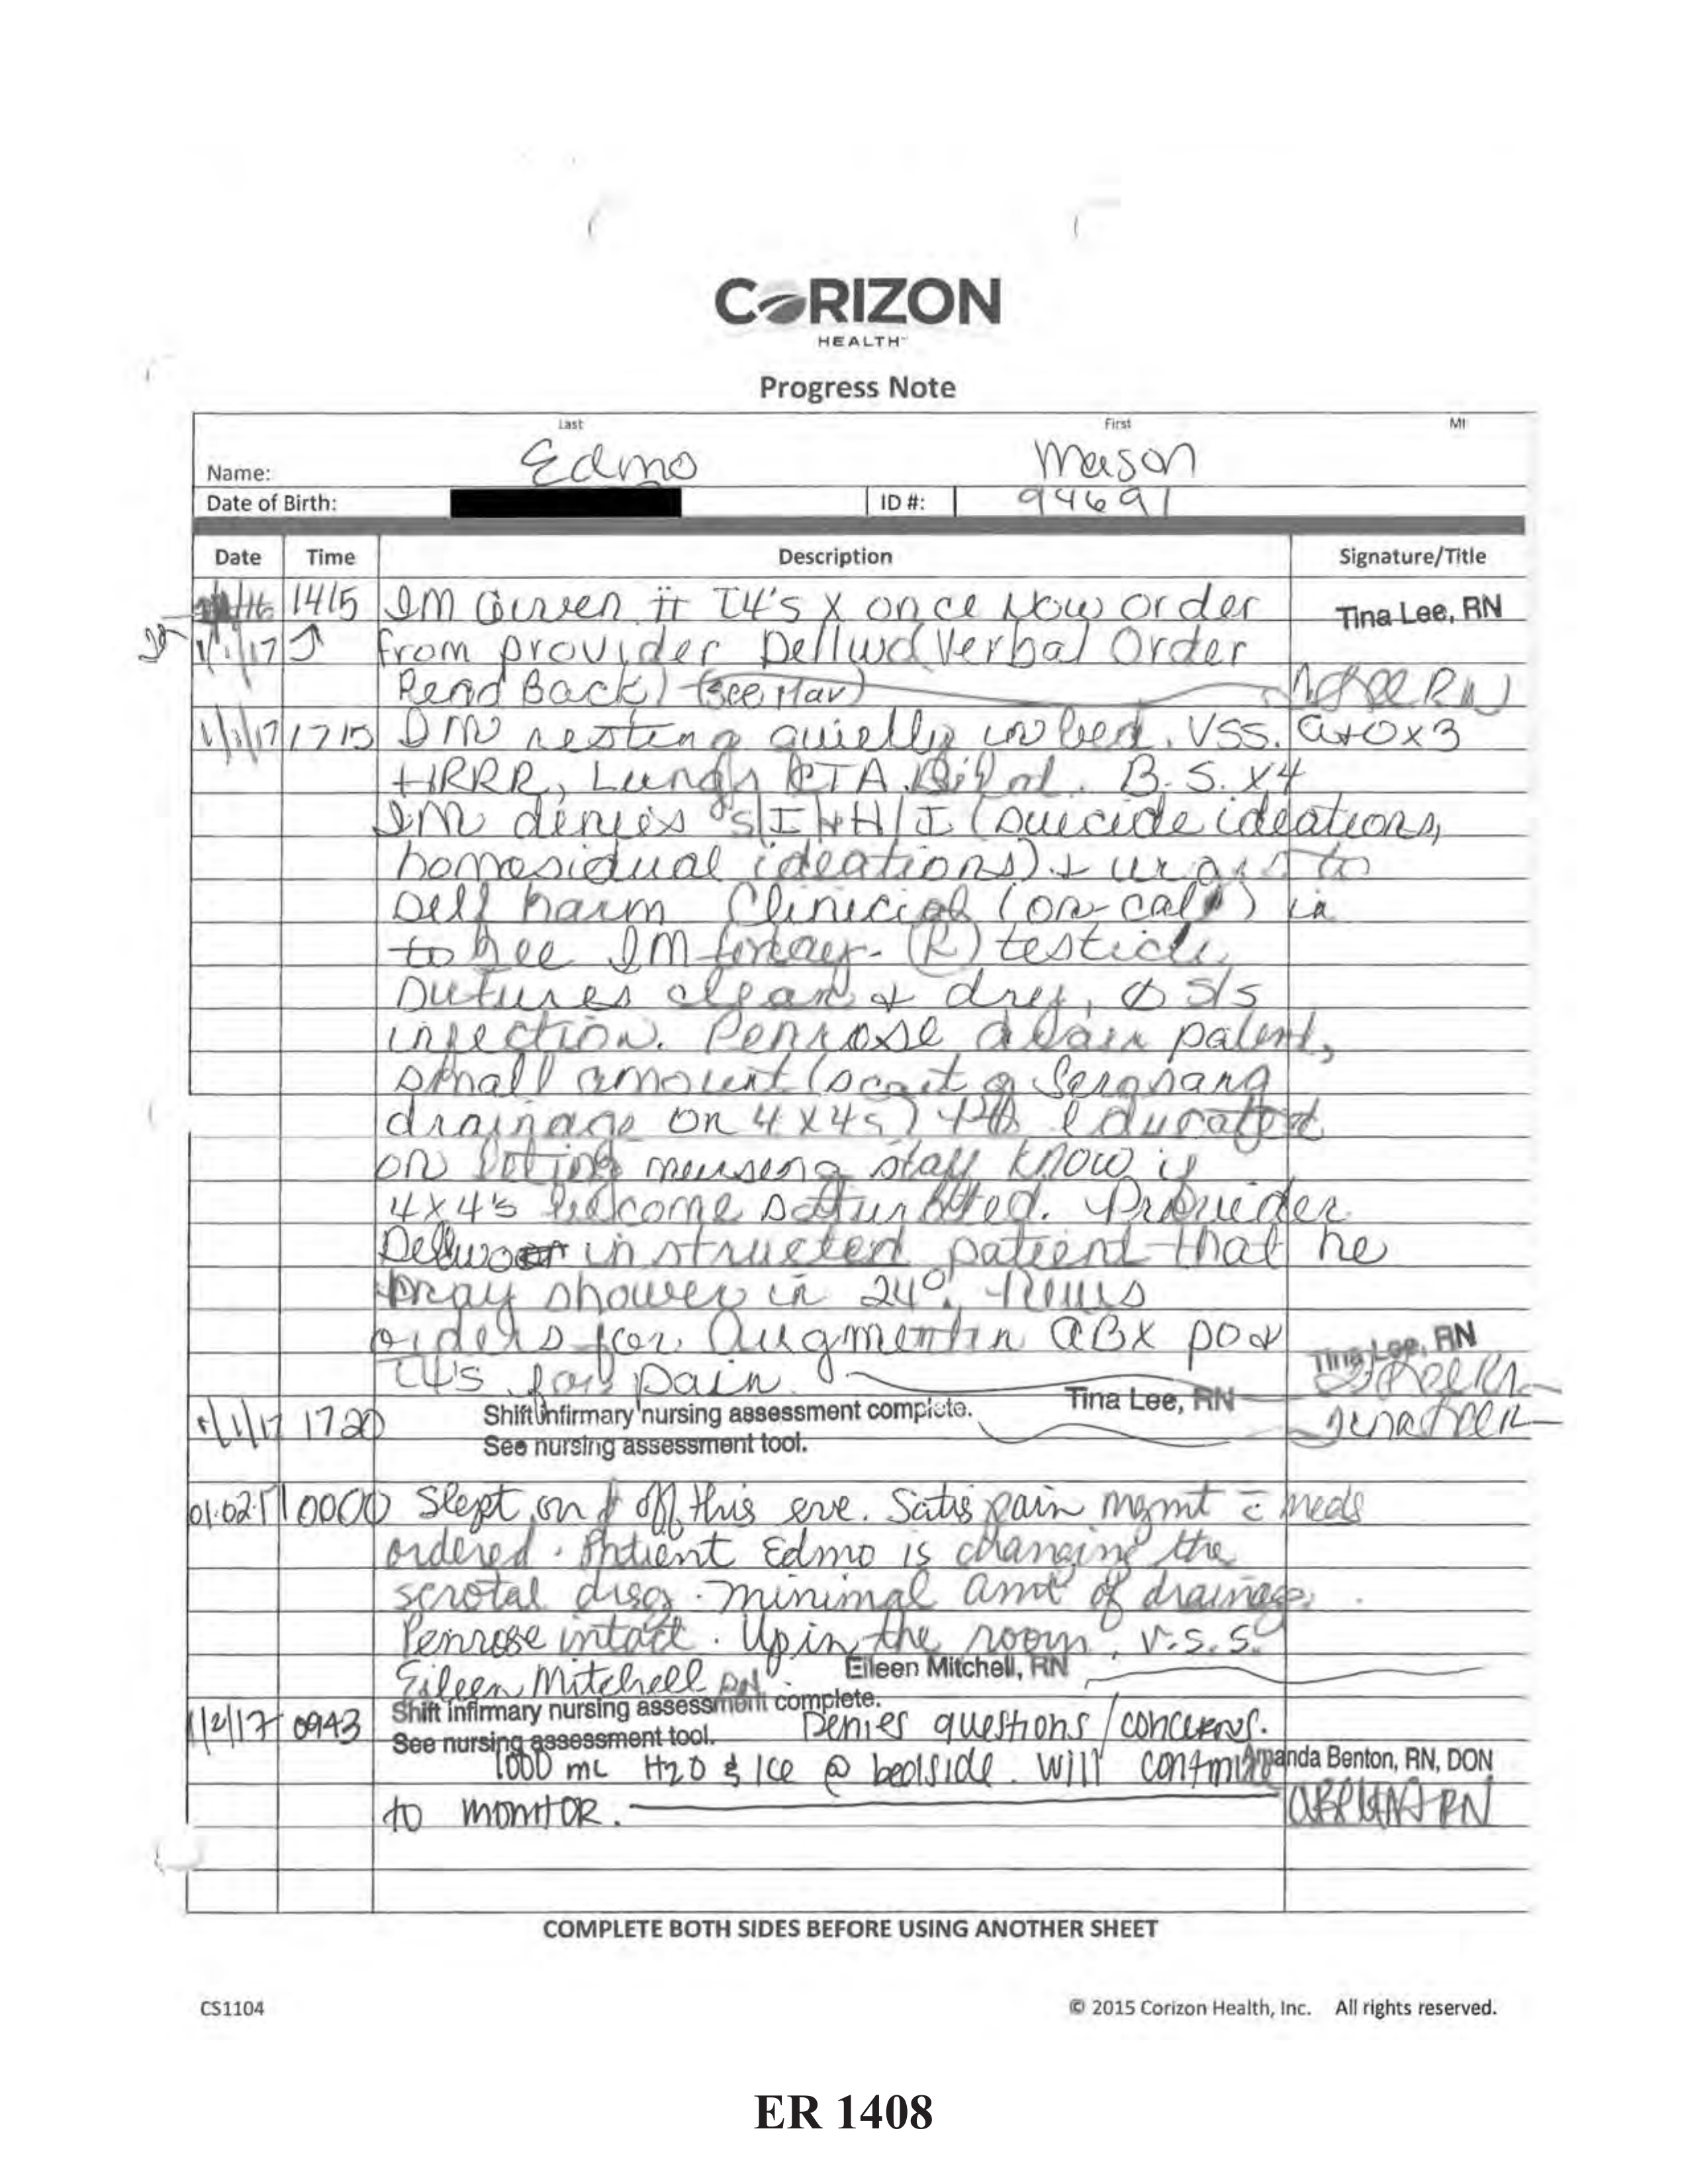 CORIZON
HEALTH
Progress Note
Last First MI
Name: Edmo Mason
Date of Birth: ID #: 94691
Date Time Description Signature/Title
1415 IM Given ii T4's x once Now order Tina Lee, RN
1/1/17 from provider Verbal Order
Read Back) (see Mar) RN
1/1/17 1715 IM resting quietly in bed. VSS. a+0x3
HRRR, Lungs CTA B.S. x4
IM denies S/I + H/I (suicide ideations,
homosidual ideations) + urges to
self harm Clinicial (on-call) in
to see IM today. (R) testicle
sutures clean & dry, Ø S/S
infection. Penrose drain patent,
small amount (scant of serosang
drainage on 4x4s) educated
on leting nursing staff know if
4x4's become saturated. Provider
instructed patient that he
may shower in 24°.
orders for Augmentin ABX po &
T4's for pain. Tina Lee, RN
1/1/17 1720 Shift infirmary nursing assessment complete. Tina Lee, RN
See nursing assessment tool.
01.02.17 0000 Slept on & off this eve. Satis pain mgmt c̄ meds
ordered. Patient Edmo is changing the
scrotal drsg. minimal amt of drainage.
Penrose intact. Up in the room. V.S.S.
Eileen Mitchell RN Eileen Mitchell, RN
1/2/17 0943 Shift infirmary nursing assessment complete.
See nursing assessment tool. Denies questions/concerns.
1000 mL H2O & ICE @ bedside. Will continue Amanda Benton, RN, DON
to monitor. RN
COMPLETE BOTH SIDES BEFORE USING ANOTHER SHEET
CS1104 © 2015 Corizon Health, Inc. All rights reserved.
ER 1408